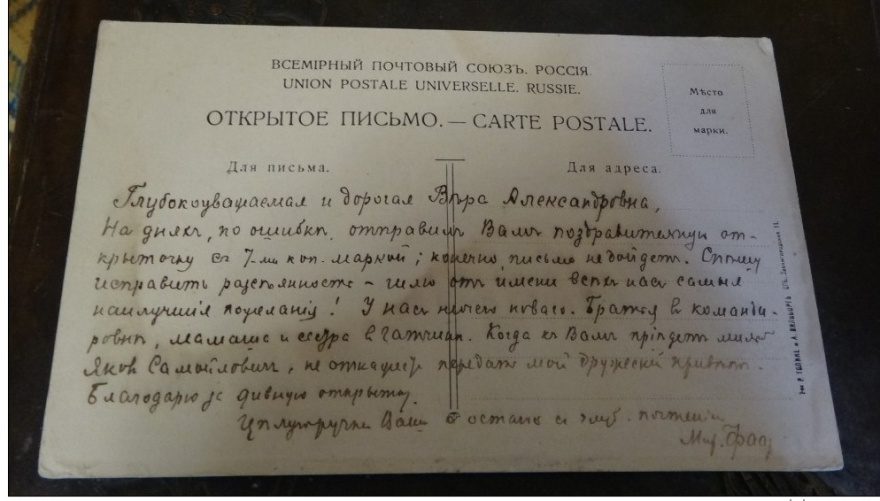 ВСЕМІРНЫЙ ПОЧТОВЫЙ СОЮЗЪ. РОССІЯ.
UNION POSTALE UNIVERSELLE. RUSSIE.
Мѣсто
для
марки.
ОТКРЫТОЕ ПИСЬМО. — CARTE POSTALE.
Для письма.
Для адреса.
Глубокоуважаемая и дорогая Вѣра Александровна,
На дняхъ, по ошибкѣ, отправилъ Вамъ поздравительную от-
крыточку съ 7-ми коп. маркой; конечно, письмо не дойдетъ. Спѣшу
исправить разсѣянность – шлю отъ имени всѣхъ насъ самыя
наилучшія пожеланія! У насъ ничего новаго. Братъ въ команди-
ровкѣ, мамаша и сестра в Гатчинѣ. Когда къ Вамъ пріѣдетъ милый
Яковъ Самойловичъ, не откажите передать мой дружескій привѣтъ.
Благодарю за дивную открытку.
Цѣлую ручки Ваши остаюсь съ глуб. почтеніемъ